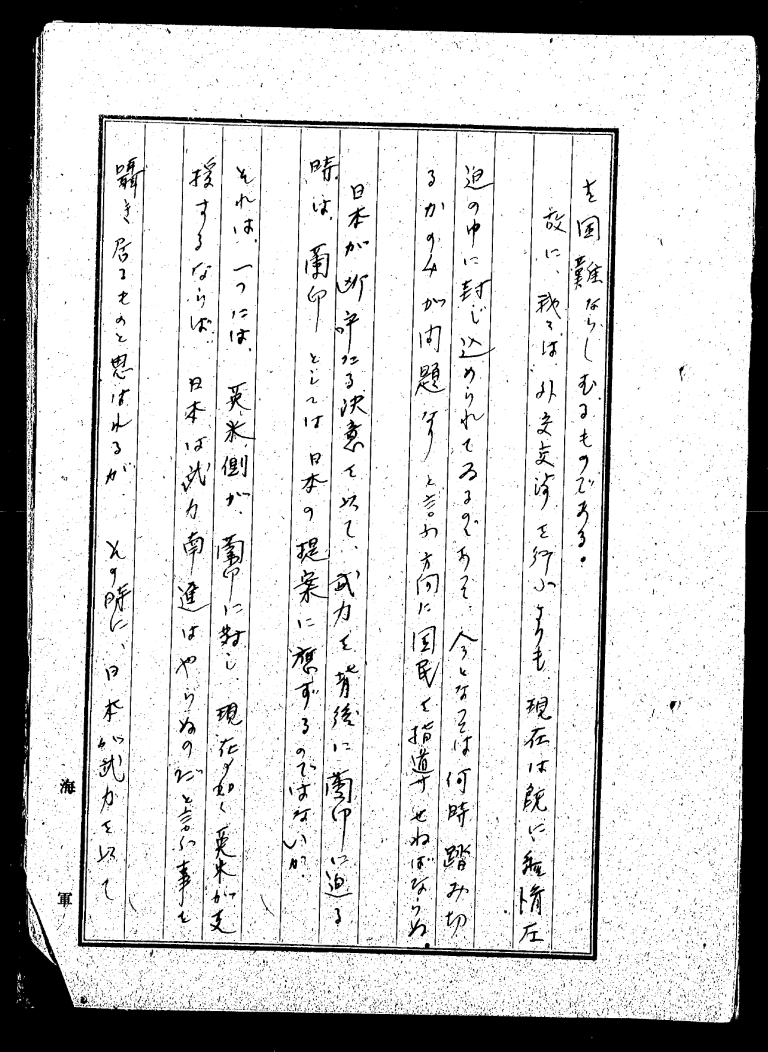 を困難ならしむるものである。
故に、我々は外交交渉を行ふよりも現在は既に経情圧
迫の中に封じ込められてゐるのであって、今となっては何時踏み切
るかのみが問題なりと言ふ方向に国民を指導せねばならぬ。
日本が断乎たる決意を以て、武力を背後に蘭印に迫る
時は、蘭印としては日本の提案に応ずるのではないか。
それは、一つには、英米側が、蘭印に対し、現在の如く英米が支
援するならば、日本は武力南進はやらぬのだと言ふ事を
囁き居るものと思はれるが、その時に、日本が武力を以て
海軍